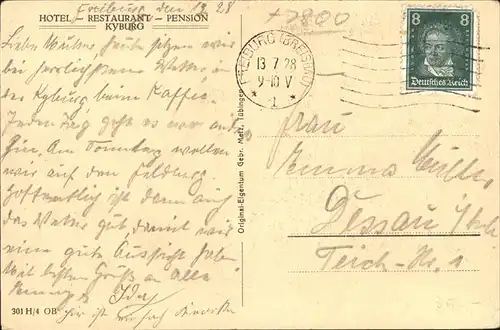 Freiburg den 12. 28
HOTEL – RESTAURANT – PENSION
KYBURG
Liebe Mutter heute sitzen wir
bei herrlichstem Wetter in
der Kyburg beim Kaffee.
Jeden Tag geht es wo anders
hin. Am Sonntag wollen
wir auf den Feldberg
hoffentlich ist dann auch
das Wetter gut, damit wir
eine gute Aussicht haben
Mit besten Grüßen an alle
Ida
hier ist einfach
301 H/4 OB
Original-Eigentum Gebr. Metz, Tübingen
+7800
FREIBURG (BREISGAU)
13 7 28
9-10 V
* 1 *
8 8
Deutsches Reich
Frau
Emma Müller
Dessau
Teich-Str. 1